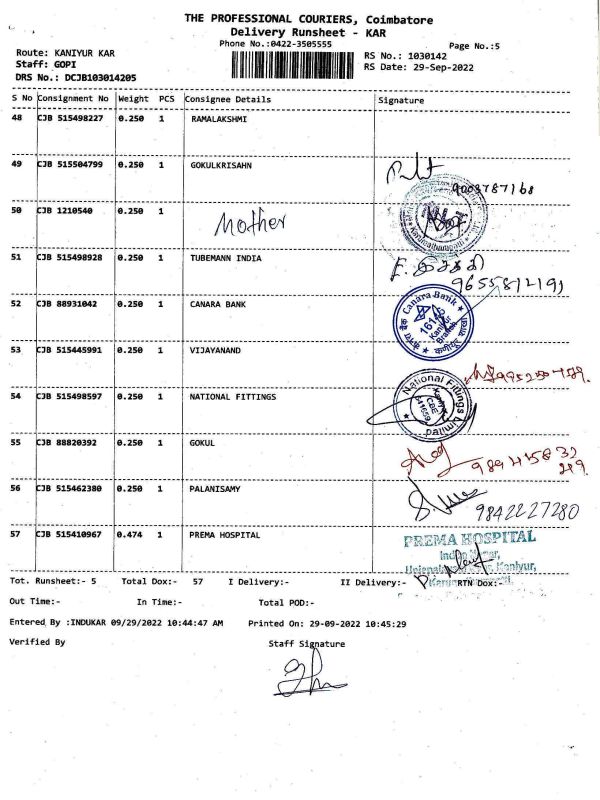 THE PROFESSIONAL COURIERS, Coimbatore
Delivery Runsheet - KAR
Phone No.:0422-3505555
Page No.:5
Route: KANIYUR KAR
Staff: GOPI
DRS No.: DCJB103014205
RS No.: 1030142
RS Date: 29-Sep-2022
S No Consignment No Weight PCS Consignee Details Signature
48 CJB 515498227 0.250 1 RAMALAKSHMI
49 CJB 515504799 0.250 1 GOKULKRISAHN
9003787168
50 CJB 1210540 0.250 1 Mother
51 CJB 515498928 0.250 1 TUBEMANN INDIA
9655812191
52 CJB 88931042 0.250 1 CANARA BANK
Canara Bank
16145
Kaniyur
Branch
53 CJB 515445991 0.250 1 VIJAYANAND
54 CJB 515498597 0.250 1 NATIONAL FITTINGS
National Fittings Limited
Kaniyur
CBE
641659
55 CJB 88820392 0.250 1 GOKUL
56 CJB 515462380 0.250 1 PALANISAMY
9842227280
57 CJB 515410967 0.474 1 PREMA HOSPITAL
PREMA HOSPITAL
Kaniyur,
Tot. Runsheet:- 5 Total Dox:- 57 I Delivery:- II Delivery:- RTN Dox:-
Out Time:- In Time:- Total POD:-
Entered By :INDUKAR 09/29/2022 10:44:47 AM Printed On: 29-09-2022 10:45:29
Verified By Staff Signature